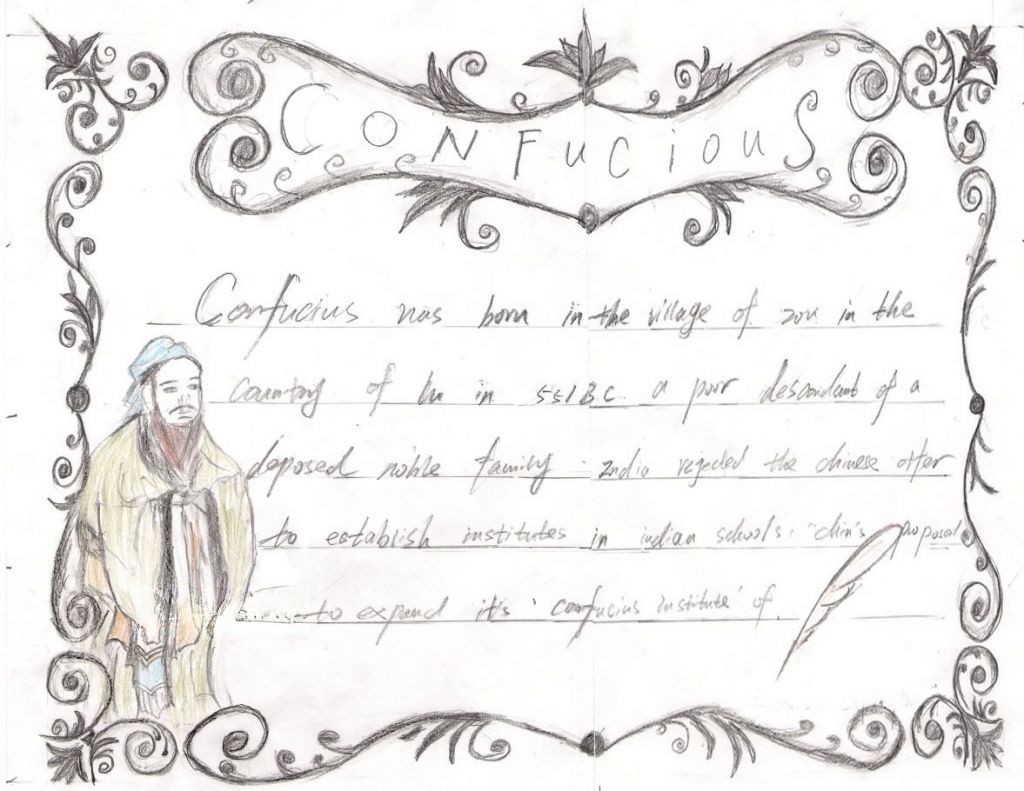 CONFUCiOUS
Confucius was born in the village of zou in the
country of lu in 551BC. a poor descendant of a
deposed noble family. India rejected the chinese offer
to establish institutes in indian schools. "chin's proposal
to expand it's 'confucius institute' of.